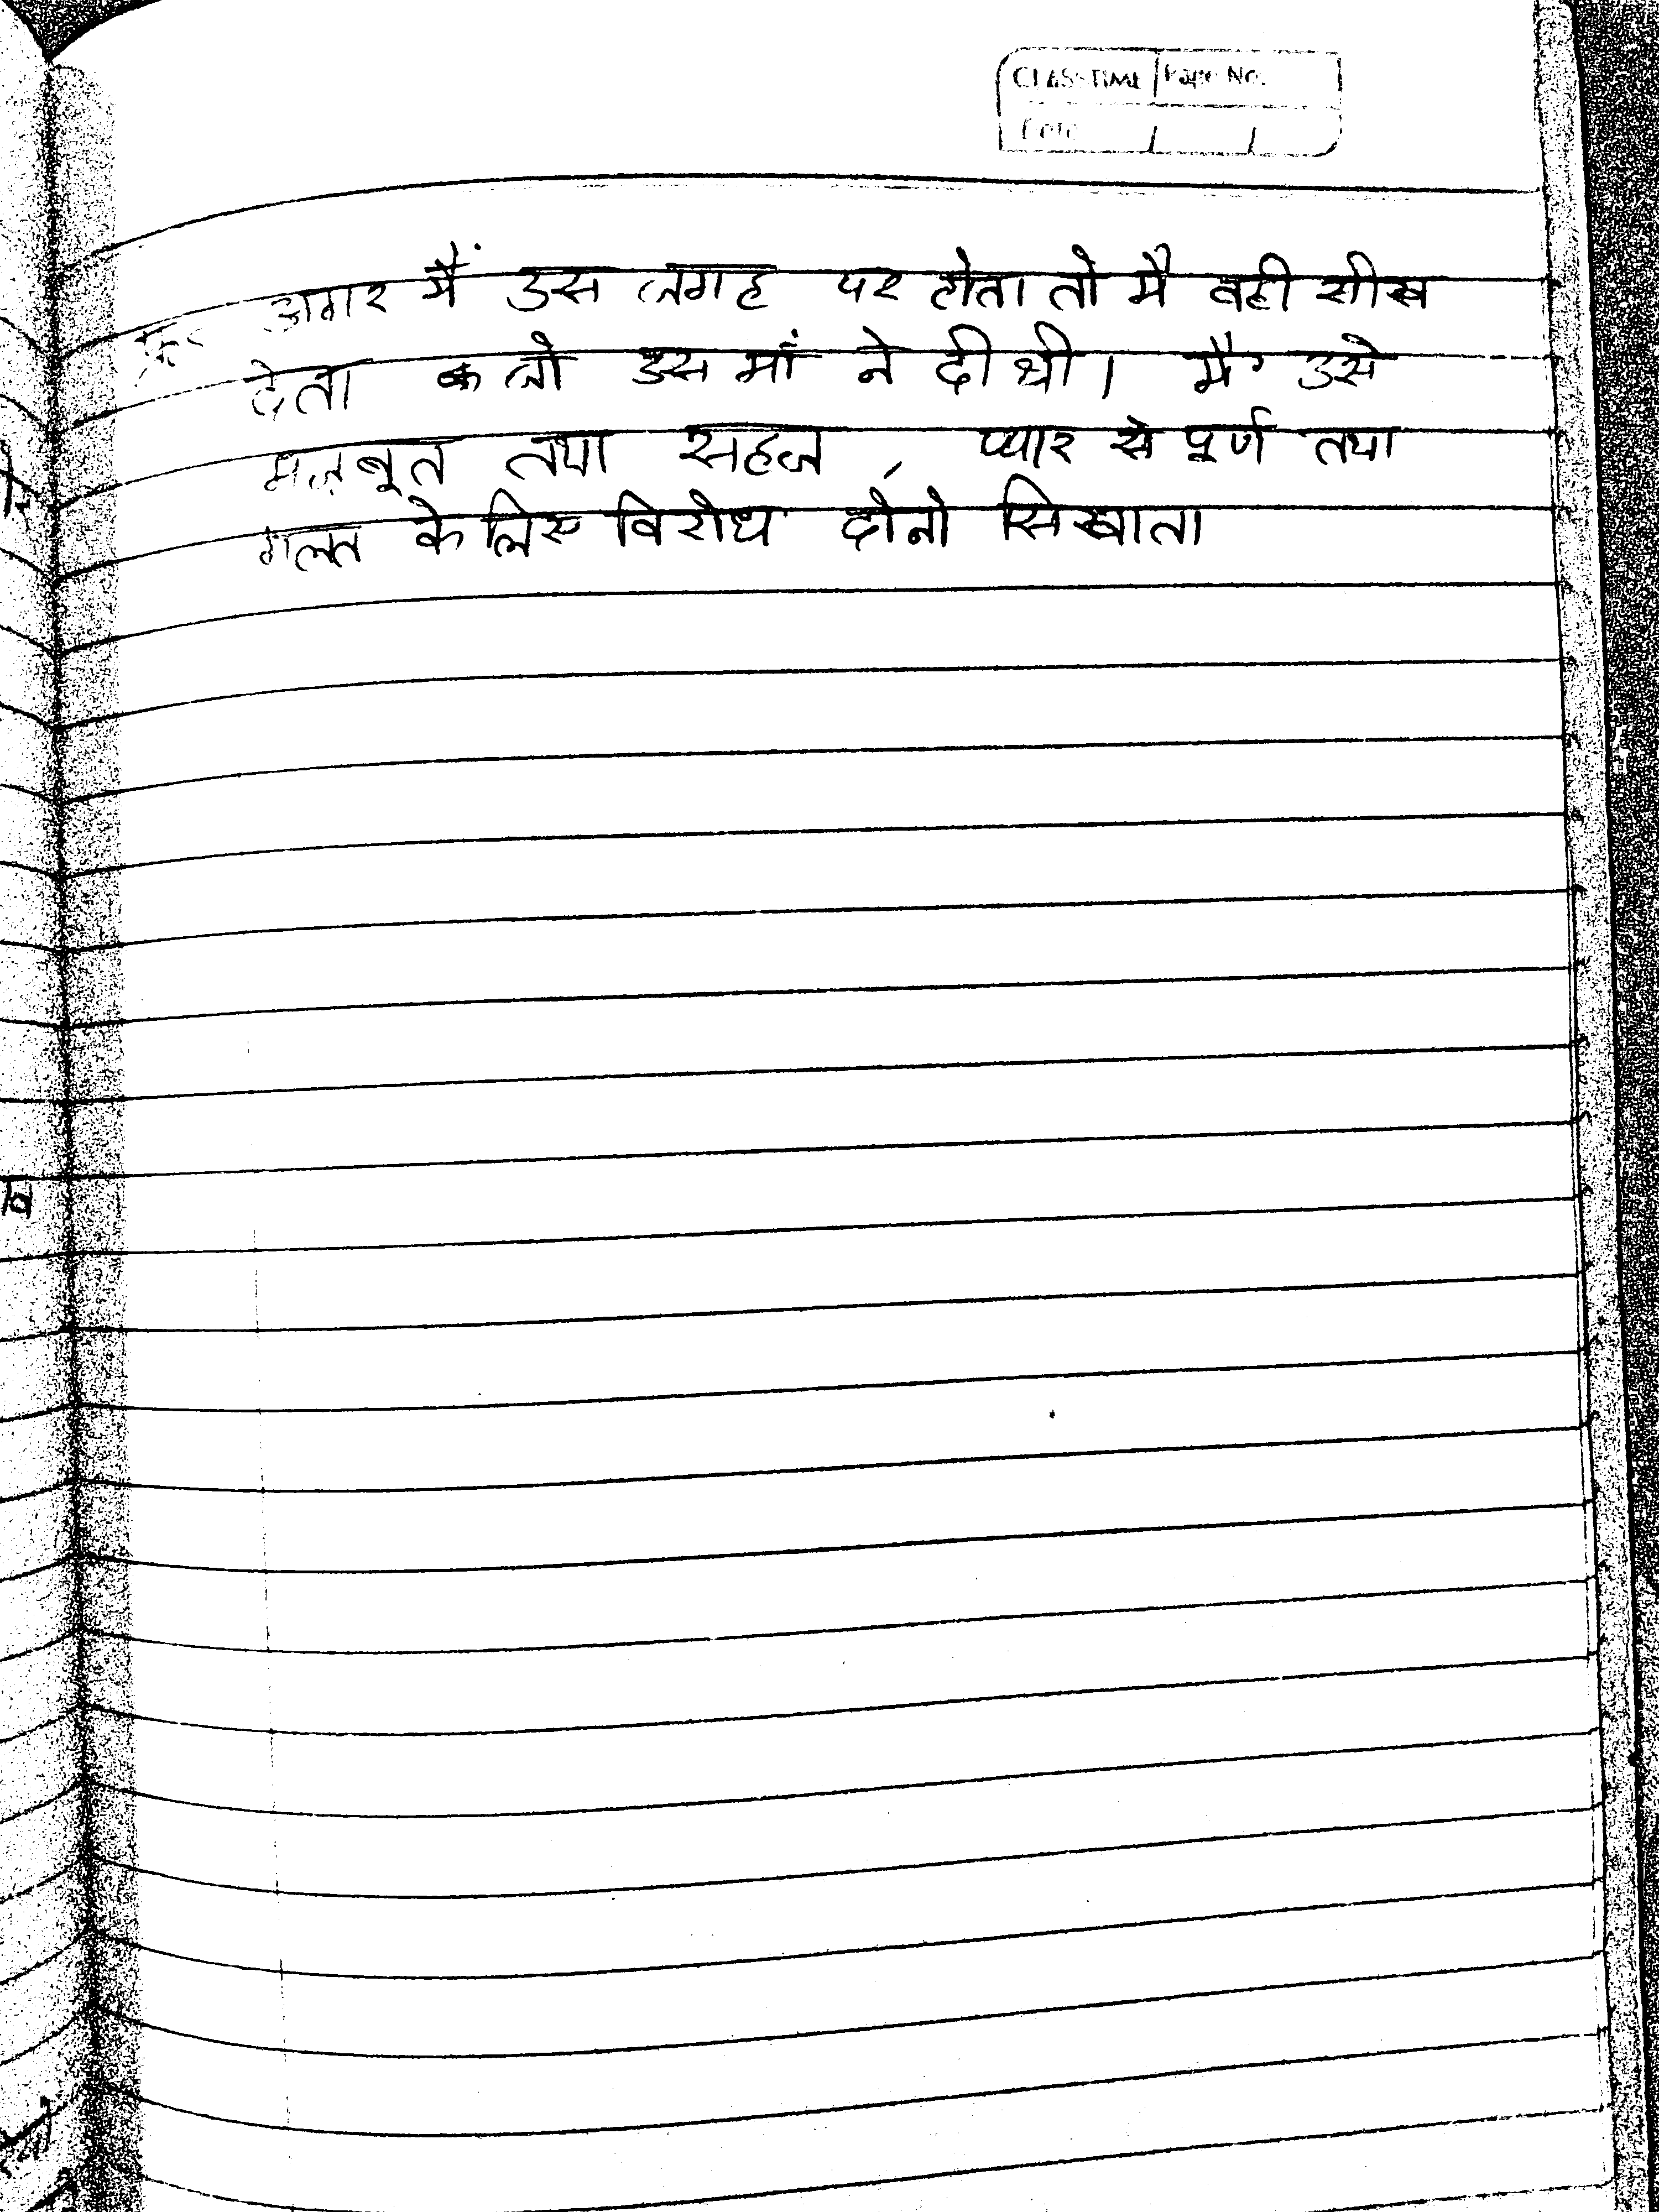 CLASSTIME Page No.
Date / /
अगर मैं उस जगह पर होता तो मै वही सीख
देता जो उस मां ने दी थी। मैं उसे
मज़बूत तथा सहज, प्यार से पूर्ण तथा
गलत के लिए विरोध दोनो सिखाता